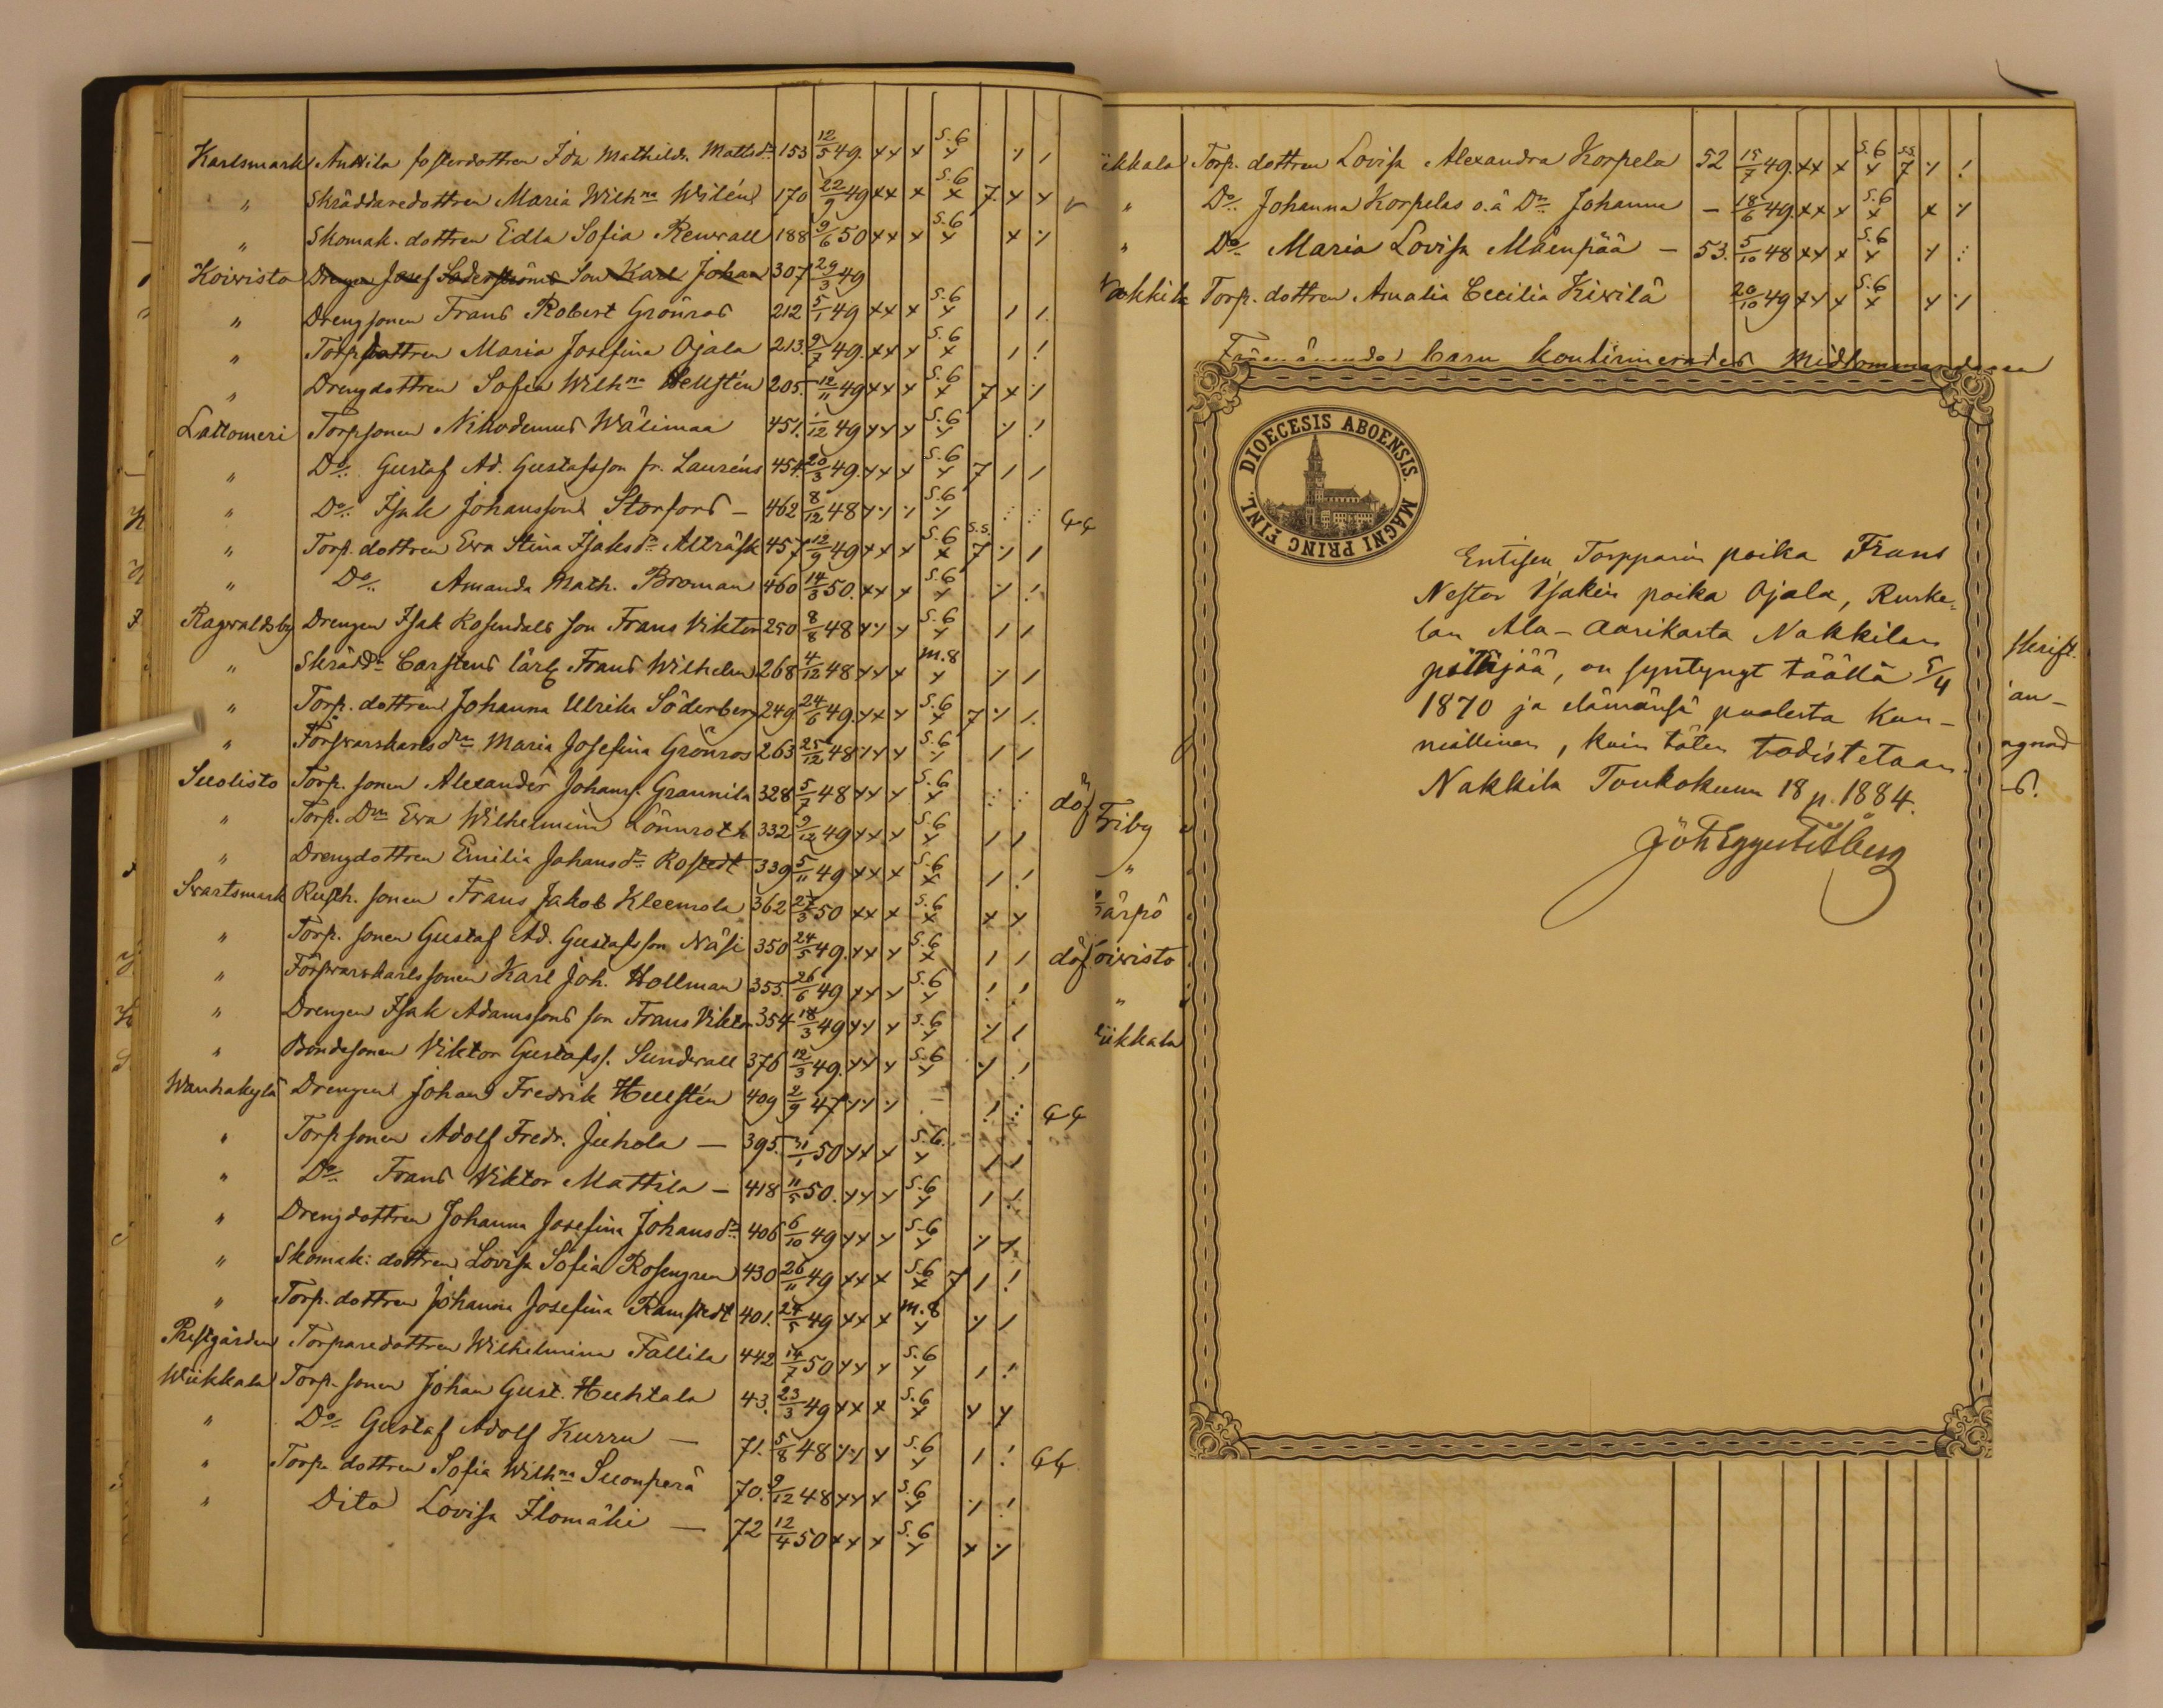 Karlsmark Anttila fosterdottren Ida Mathilda Mattsdr 153 12/5 49. xx x S.6
" Skräddaredottren Maria Wilhna Wilén 170 22/9 49 xx x S.6 x 7.
" Skomak. dottren Edla Sofia Renvall 188 9/6 50 xx x S.6
Koivisto Drengen Josef Söderströms Son Karl Johan 307 29/3 49
" Drengsonen Frans Robert Grönros 212 5/1 49 xx x S.6
" Torpdottren Maria Josefina Ojala 213. 9/7 49. xx x S.6
" Drengdottren Sofia Wilhna Hellstén 205. 12/11 49 xx x S.6 7
Lattomeri Torpsonen Nikodemus Wälimaa 451. 1/12 49 S.6
" Do Gustaf Ad. Gustafsson fr. Lauréns 454 20/3 49. S.6 7
" Do Isak Johansson Storfors - 462 8/12 48 S.6
" Torp. dottren Eva Stina Isaksdr Alträsk 457 12/9 49 xx x S.6 S.S. 7
" Do Amanda Math. Broman 460 14/3 50. S.6
Ragvaldsby Drengen Isak Rosendals son Frans Viktor 250 8/8 48 S.6
" Skrädd. Carstens lärl. Frans Wilhelm 268 4/12 48 m.8
" Torp. dottren Johanna Ulrika Söderberg 249. 24/6 49. S.6 7
" Försvarskarls dn Maria Josefina Grönros 263 25/12 48 S.6
Suolisto Torp. sonen Alexander Johanss. Grannila 328 5/7 48 S.6
" Torp. Dtn Eva Wilhelmina Lönnroth 332 9/12 49 S.6
" Drengdottren Emilia Johansdr Rostedt 339 5/11 49 xx x S.6
Svartsmark Rusth. sonen Frans Jakob Kleemola 362 27/3 50 xx x S.6
" Torp. sonen Gustaf Ad. Gustafsson Näsi 350 24/5 49. S.6
" Försvarskarlssonen Karl Joh. Hollman 355. 26/6 49 S.6
" Drengen Isak Adamssons son Frans Viktor 354 18/3 49 S.6
" Bondesonen Viktor Gustafss. Sundvall 376 12/3 49. S.6
Wanhakylä Drengen Johan Fredrik Hellstén 409 2/9 47
" Torpsonen Adolf Fredr. Juhola — 395. 31/1 50 S.6
" Do Frans Viktor Mattila — 418 11/5 50. S.6
" Drengdottren Johanna Josefina Johansdr 406 6/10 49 S.6
" Skomak: dottren Lovisa Sofia Rosengren 430 26/11 49 xx x S.6 7
" Torp. dottren Johanna Josefina Ramstedt 401. 27/5 49 xx x m.8
Prestgården Torparedottren Wilhelmina Tallila 442 14/7 50 S.6
Wiikkala Torp. sonen Johan Gust. Huhtala 43. 23/3 49 xx x S.6
" Do Gustaf Adolf Kurru — 71. 5/8 48 S.6
" Torp. dottren Sofia Wilhna Suonperä 70. 9/12 48 S.6
" Dito Lovisa Ilomäki — 72 12/4 50 xx x S.6
död
död
Friby
"
ärpö
oivisto
"
iikkala
ikkala Torp. dottren Lovisa Alexandra Korpela 52 15/7 49. xx x S.6 S.S. 7
" Do Johanna Korpelas o.ä Dn Johanna — 18/6 49. xx x S.6
" Do Maria Lovisa Mäenpää — 53. 5/10 48 xx x S.6
Nakkila Torp. dottren Amalia Cecilia Kivilä 20/10 49 xx x S.6
barn konfirmerades Midsommardagen
DIOECESIS ABOENSIS. MAGNI PRINC FINL.
Entisen Torpparin poika Frans
Nestor Isakin poika Ojala, Ruske-
lan Ala-Aarikasta Nakkilan
pitäjää, on syntynyt täällä 5/4
1870 ja elämänsä puolesta Kun-
niallinen, kuin täten todistetaan.
Nakkila Toukokuun 18 p. 1884.
Skrift.
an-
agnad